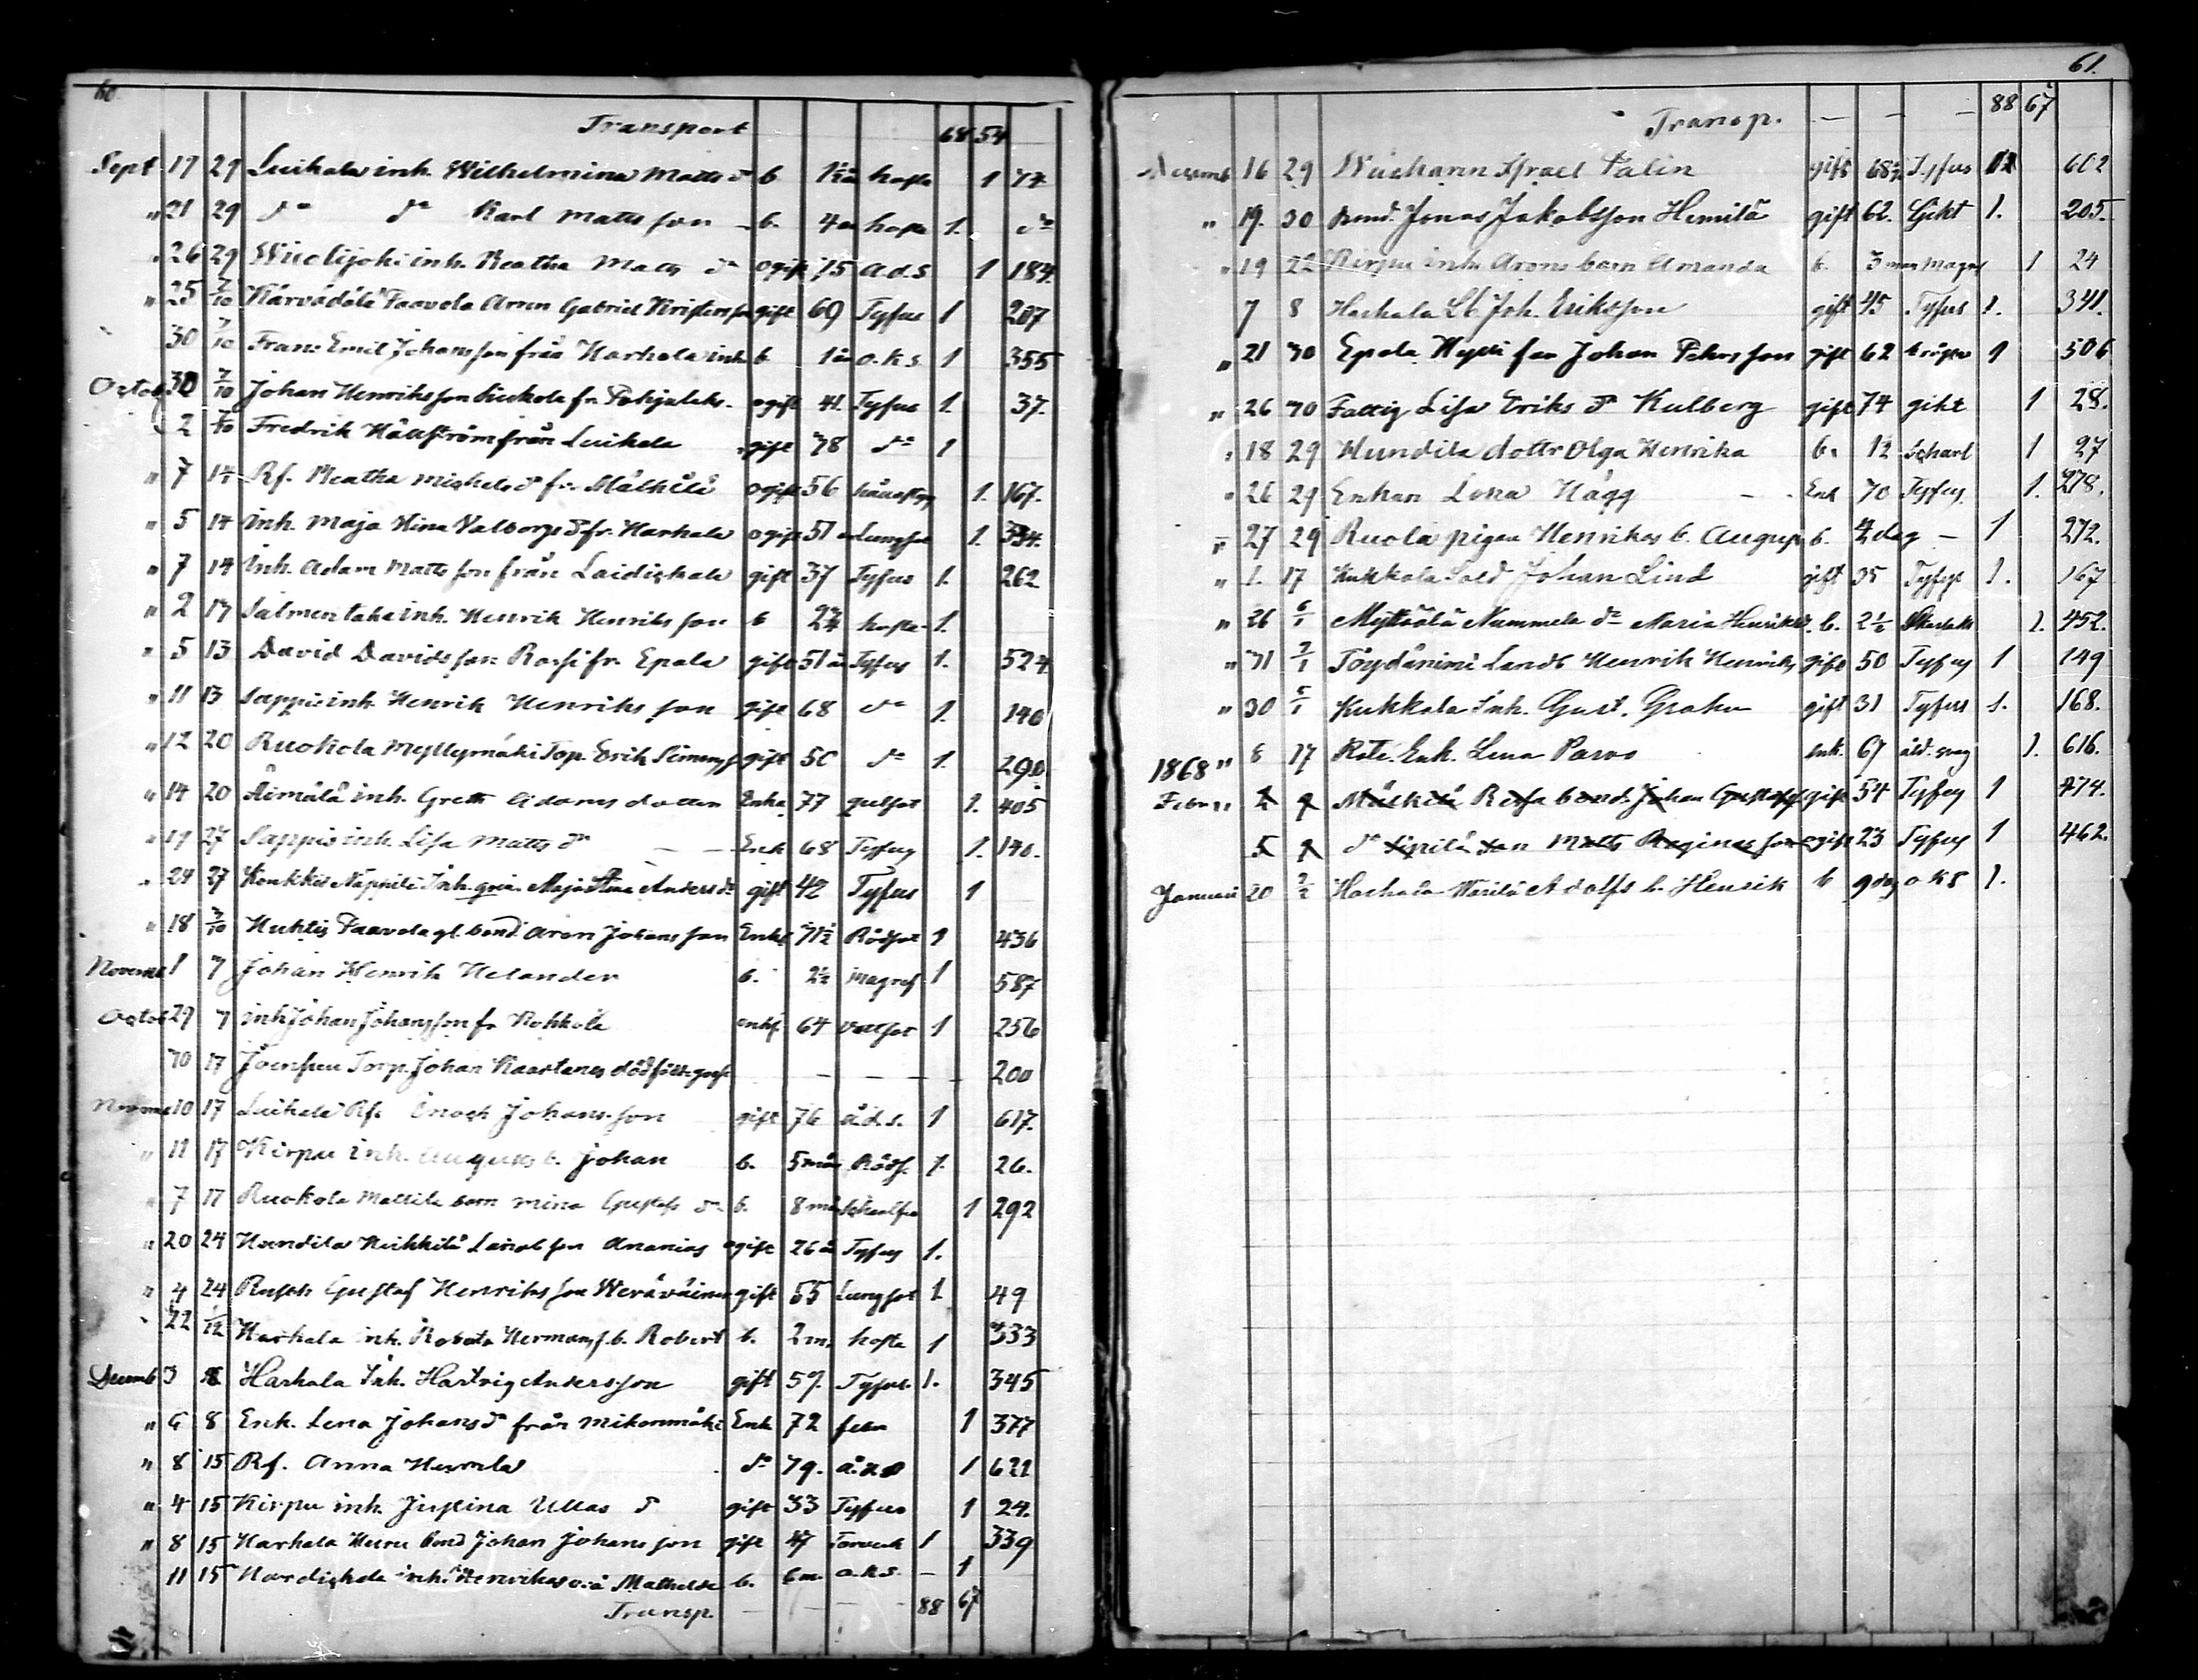 60.
Transport 68 54
Sept 17 29 Luikala inh. Wilhelmina Matts dr b. 1½ år hosta 1 77
" 21 29 do do Karl Mattsson b. 4 år hosta 1. do
26 29 Wuolijoki inh. Beatha Matts dr ogift 75 a.d.s 1 184.
" 25 7/10 Paavola Aron Gabriel gift 69 Tyfus 1 207
30 7/10 Frans Emil Johansson från Harhala inh b 1 år o.k.s. 1 355
Octob 30 7/10 Johan Henriksson fr. ogift 41. Tyfus 1. 37.
2 7/10 Fredrik Hällström från Luikala gift 38 do 1
" 7 14 Rf. Beatha Michels dr fr. Mälkilä ogift 56 1. 167.
" 5 14 inh. Maja Stina Valborgs dr fr. Harhala ogift 51 Lungsot 1. 334.
" 7 14 Inh. Adam Mattsson från Laidiskala gift 37 Tyfus 1. 262
" 2 13 Salmentaka inh. Henrik Henriksson b 2¾ hosta 1.
" 5 13 David Davidsson Rossi fr. Epala gift 51 år Tyfus 1. 524
" 11 13 Sappis inh. Henrik Henriksson gift 68 do 1. 140
" 12 20 Ruokola Myllymäki Torp. Erik gift 50 do 1. 290.
" 14 20 Äimälä inh. Greta Adams dotter Enka 77 gulsot 1. 405
" 17 27 Sappis inh. Lisa Matts dr Enk 68 Tyfus 1. 140.
" 24 27 Inh. Maja Stina Anders dr gift 42 Tyfus 1
" 18 3/10 Paavola gl. bond. Aron Johansson Enkl 71½ Rödsot 1 436
Novemb 1 7 Johan Henrik Helander b. 2½ Magref 1 587
Octob 29 7 inh Johan Johansson fr. enkl. 64 vattsot 1 256
30 17 Joensuu Torp. Johan Kaartanes dödfödt gosse — — — 200
Novemb 10 17 Luikala Rf. Enoch Johansson gift 76 å.d.s. 1 617.
" 11 17 Kirpu inh. Augusts b. Johan b. 5 mån Röds. 1. 26.
" 7 17 Ruokola Mattila barn Mina Gustafs dr b. 8 mån 1 292
" 20 24 Hundila Heikkilä son Ananias ogift 26 år Tyfus 1.
" 4 24 Rusth Gustaf Henriksson gift 55 Lungsot 1. 49
" 22 1/12 Harhala inh. Hermans b. Robert b. 2 m. hosta 1 333
Decemb 3 8 Harhala Inh. Hartvig Andersson gift 59. Tyfus. 1. 345
" 6 8 Enk. Lena Johans dr från Mikonmäki Enk 72 feber 1 377
" 8 15 Rf. Anna do 79. 1 621
" 4 15 Kirpu inh. Justina Ullas dr gift 33 Tyfus 1 24.
" 8 15 Harhala Bond Johan Johansson gift 47 1 339
11 15 inh. Mathilda b. 6 m. o.k.s. — 1
Transp. — — — 88 67
61.
Transp. — — — 88 67
Decemb 16 29 Israel Palin gift 68½ Tyfus 1 602
" 19. 30 Bond. Jonas Jakobsson Hemilä gift 62. Gikt 1. 205.
" 19 22 Kirpu inh. Arons barn Amanda b. 3 mån Magref 1 24
7 8 Harhala Joh. Eriksson gift 45 Tyfus 1. 341.
" 21 30 Epala Johan Pehrsson gift 62 1 506
" 26 30 Fattig Lisa Eriks dr Kulberg gift 74 gikt 1 28.
" 18 29 Hundila dottr Olga Henrika b. 12 Scharl 1 27
" 26 29 Enkan Lena Hägg — Enk 70 Tyfus 1. 278.
" 27 29 Ruola pigan Henrikas b. August b. 4 dag — 1 272.
" 1. 17 Kukkola Sold Johan Lind gift 35 Tyfus 1. 167
" 26 6/1 Myttäälä Nummela dr Maria Henriksd. b. 2½ 1. 452.
" 31 7/1 Henrik Henrikss gift 50 Tyfus 1 149
" 30 5/1 Kukkola Inh. Gust. Grahn gift 31 Tyfus 1. 168.
1868 " 6 17 Enk. Lena Parvo enk. 67 åld. svag 1. 616.
Febr " 2 9 Mälkilä Bond. Johan Gustafss gift 54 Tyfus 1 474.
5 9 do son Matts ogift 23 Tyfus 1 462.
Januari 20 2/2 Harhala Adolfs b. Henrik b 9 dag o k s 1.